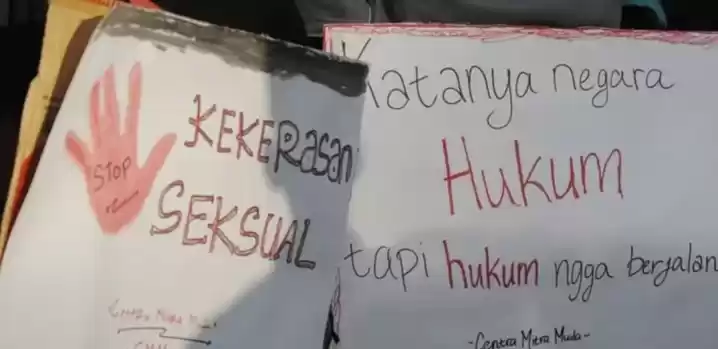 STOP
KEKERasan
SEKSUAL
Katanya negara
Hukum
tapi hukum ngga berjalan
-Centra Mitra Muda-